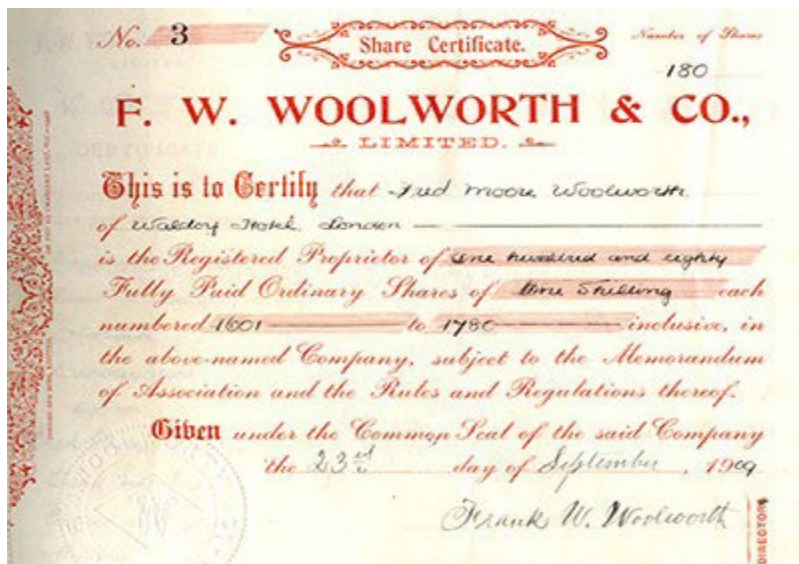 No. 3
Share Certificate.
Number of Shares
180
F. W. WOOLWORTH & CO.,
LIMITED.
This is to Certify that Fred Moore Woolworth.
of Waldorf Hotel, London
is the Registered Proprietor of One hundred and eighty
Fully Paid Ordinary Shares of One Shilling each
numbered 1601 to 1780 inclusive, in
the above-named Company, subject to the Memorandum
of Association and the Rules and Regulations thereof.
Given under the Common Seal of the said Company
the 23rd day of September, 1909
Frank W. Woolworth
DIRECTORS